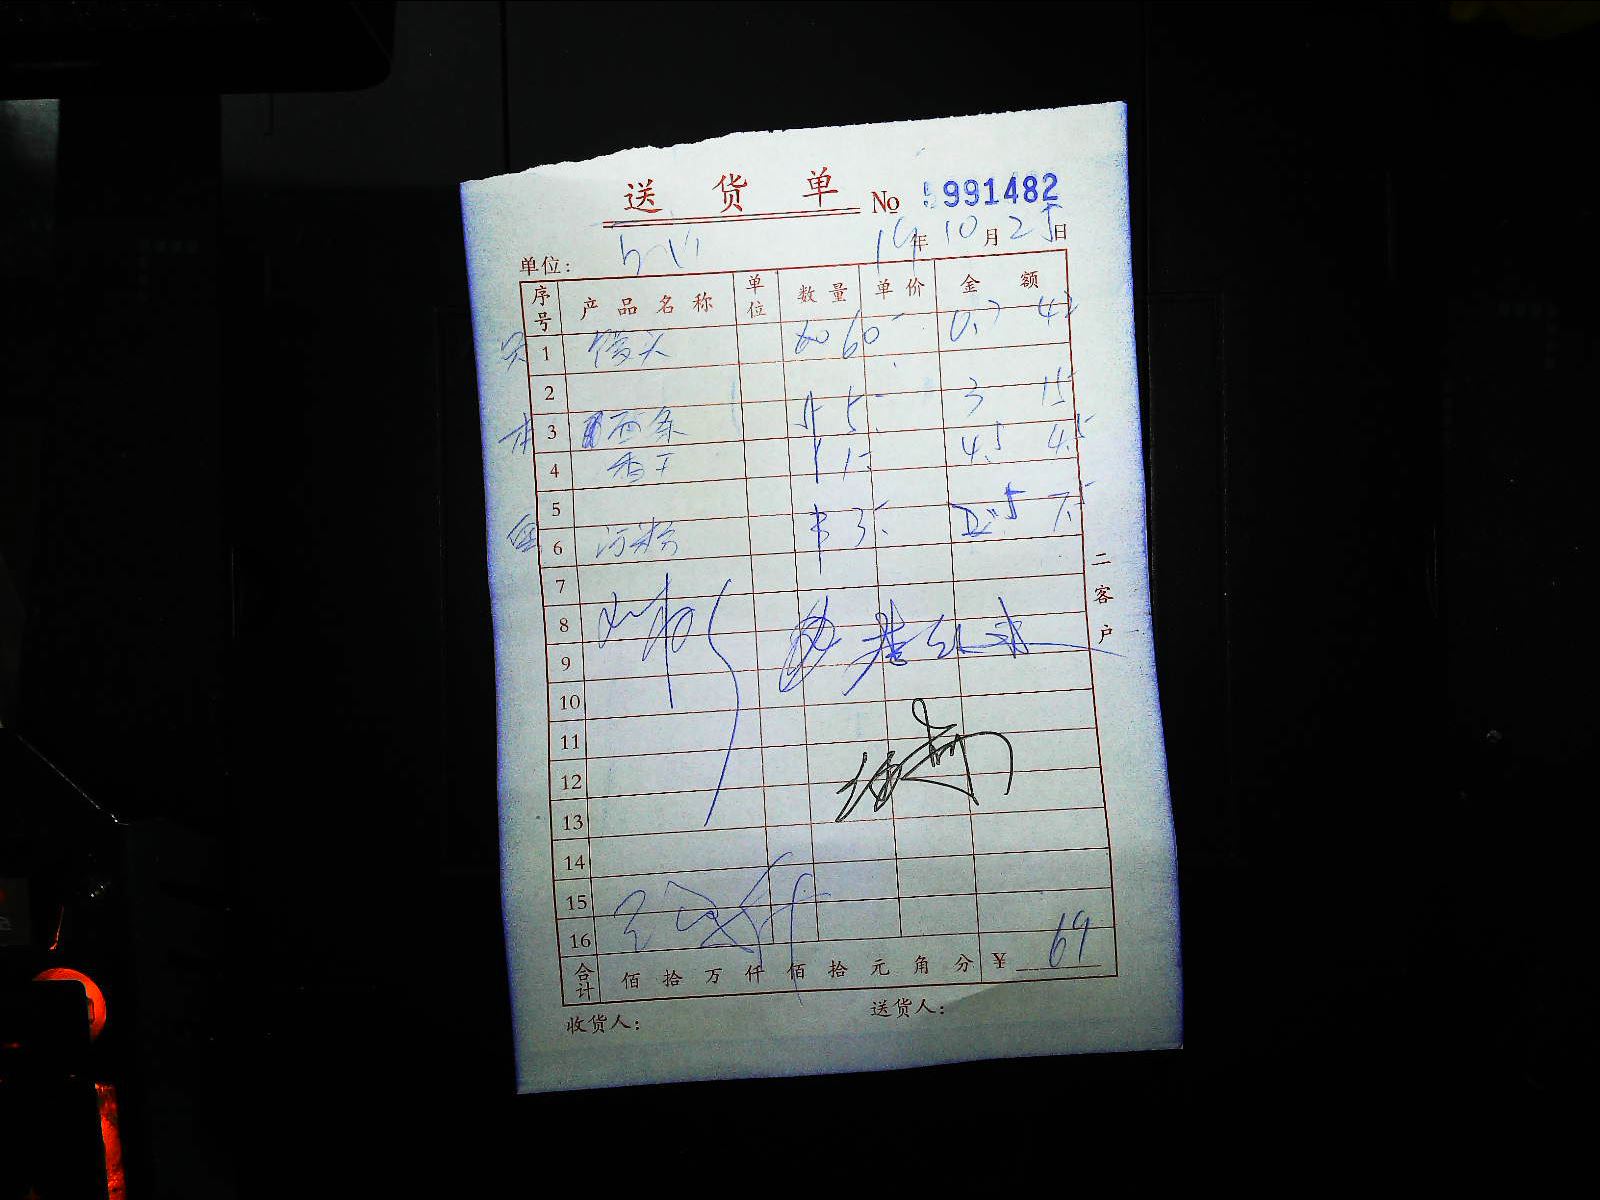 送 货 单 No 5991482
单位： 19年10月25日
序号 产品名称 单位 数量 单价 金额
1 馒头 60 60 0.7 42
2
3 面条 5 5 3 15
4 香干 1 1 4.5 4.5
5
6 河粉 3 3 2.5 7.5
7
8
9
10
11
12
13
14
15
16
合计 佰 拾 万 仟 佰 拾 元 角 分 ¥ 69
收货人： 送货人：
二客户